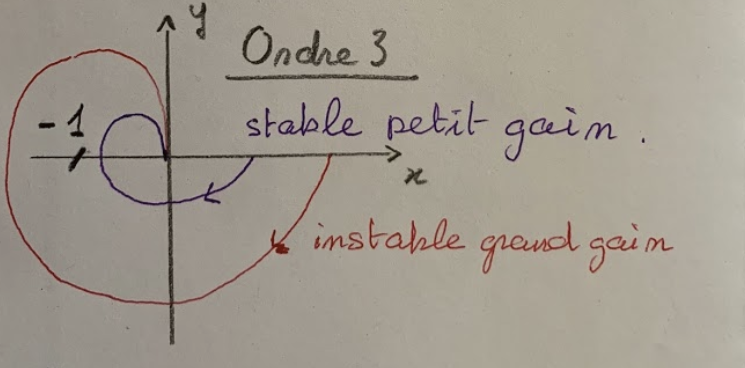 y
Ordre 3
-1
stable petit gain.
x
instable grand gain